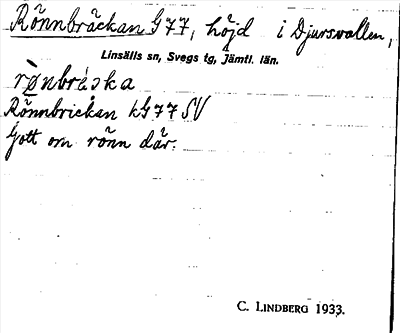 Rönnbräckan G77, höjd i Djursvallen,
Linsälls sn, Svegs tg, Jämtl. län.
rønbrèska
Rönnbrickan kG77SV
Gott om rönn där.
C. LINDBERG 1933.